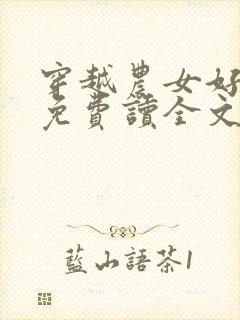 穿越農女好
免費讀全文
藍山語茶1